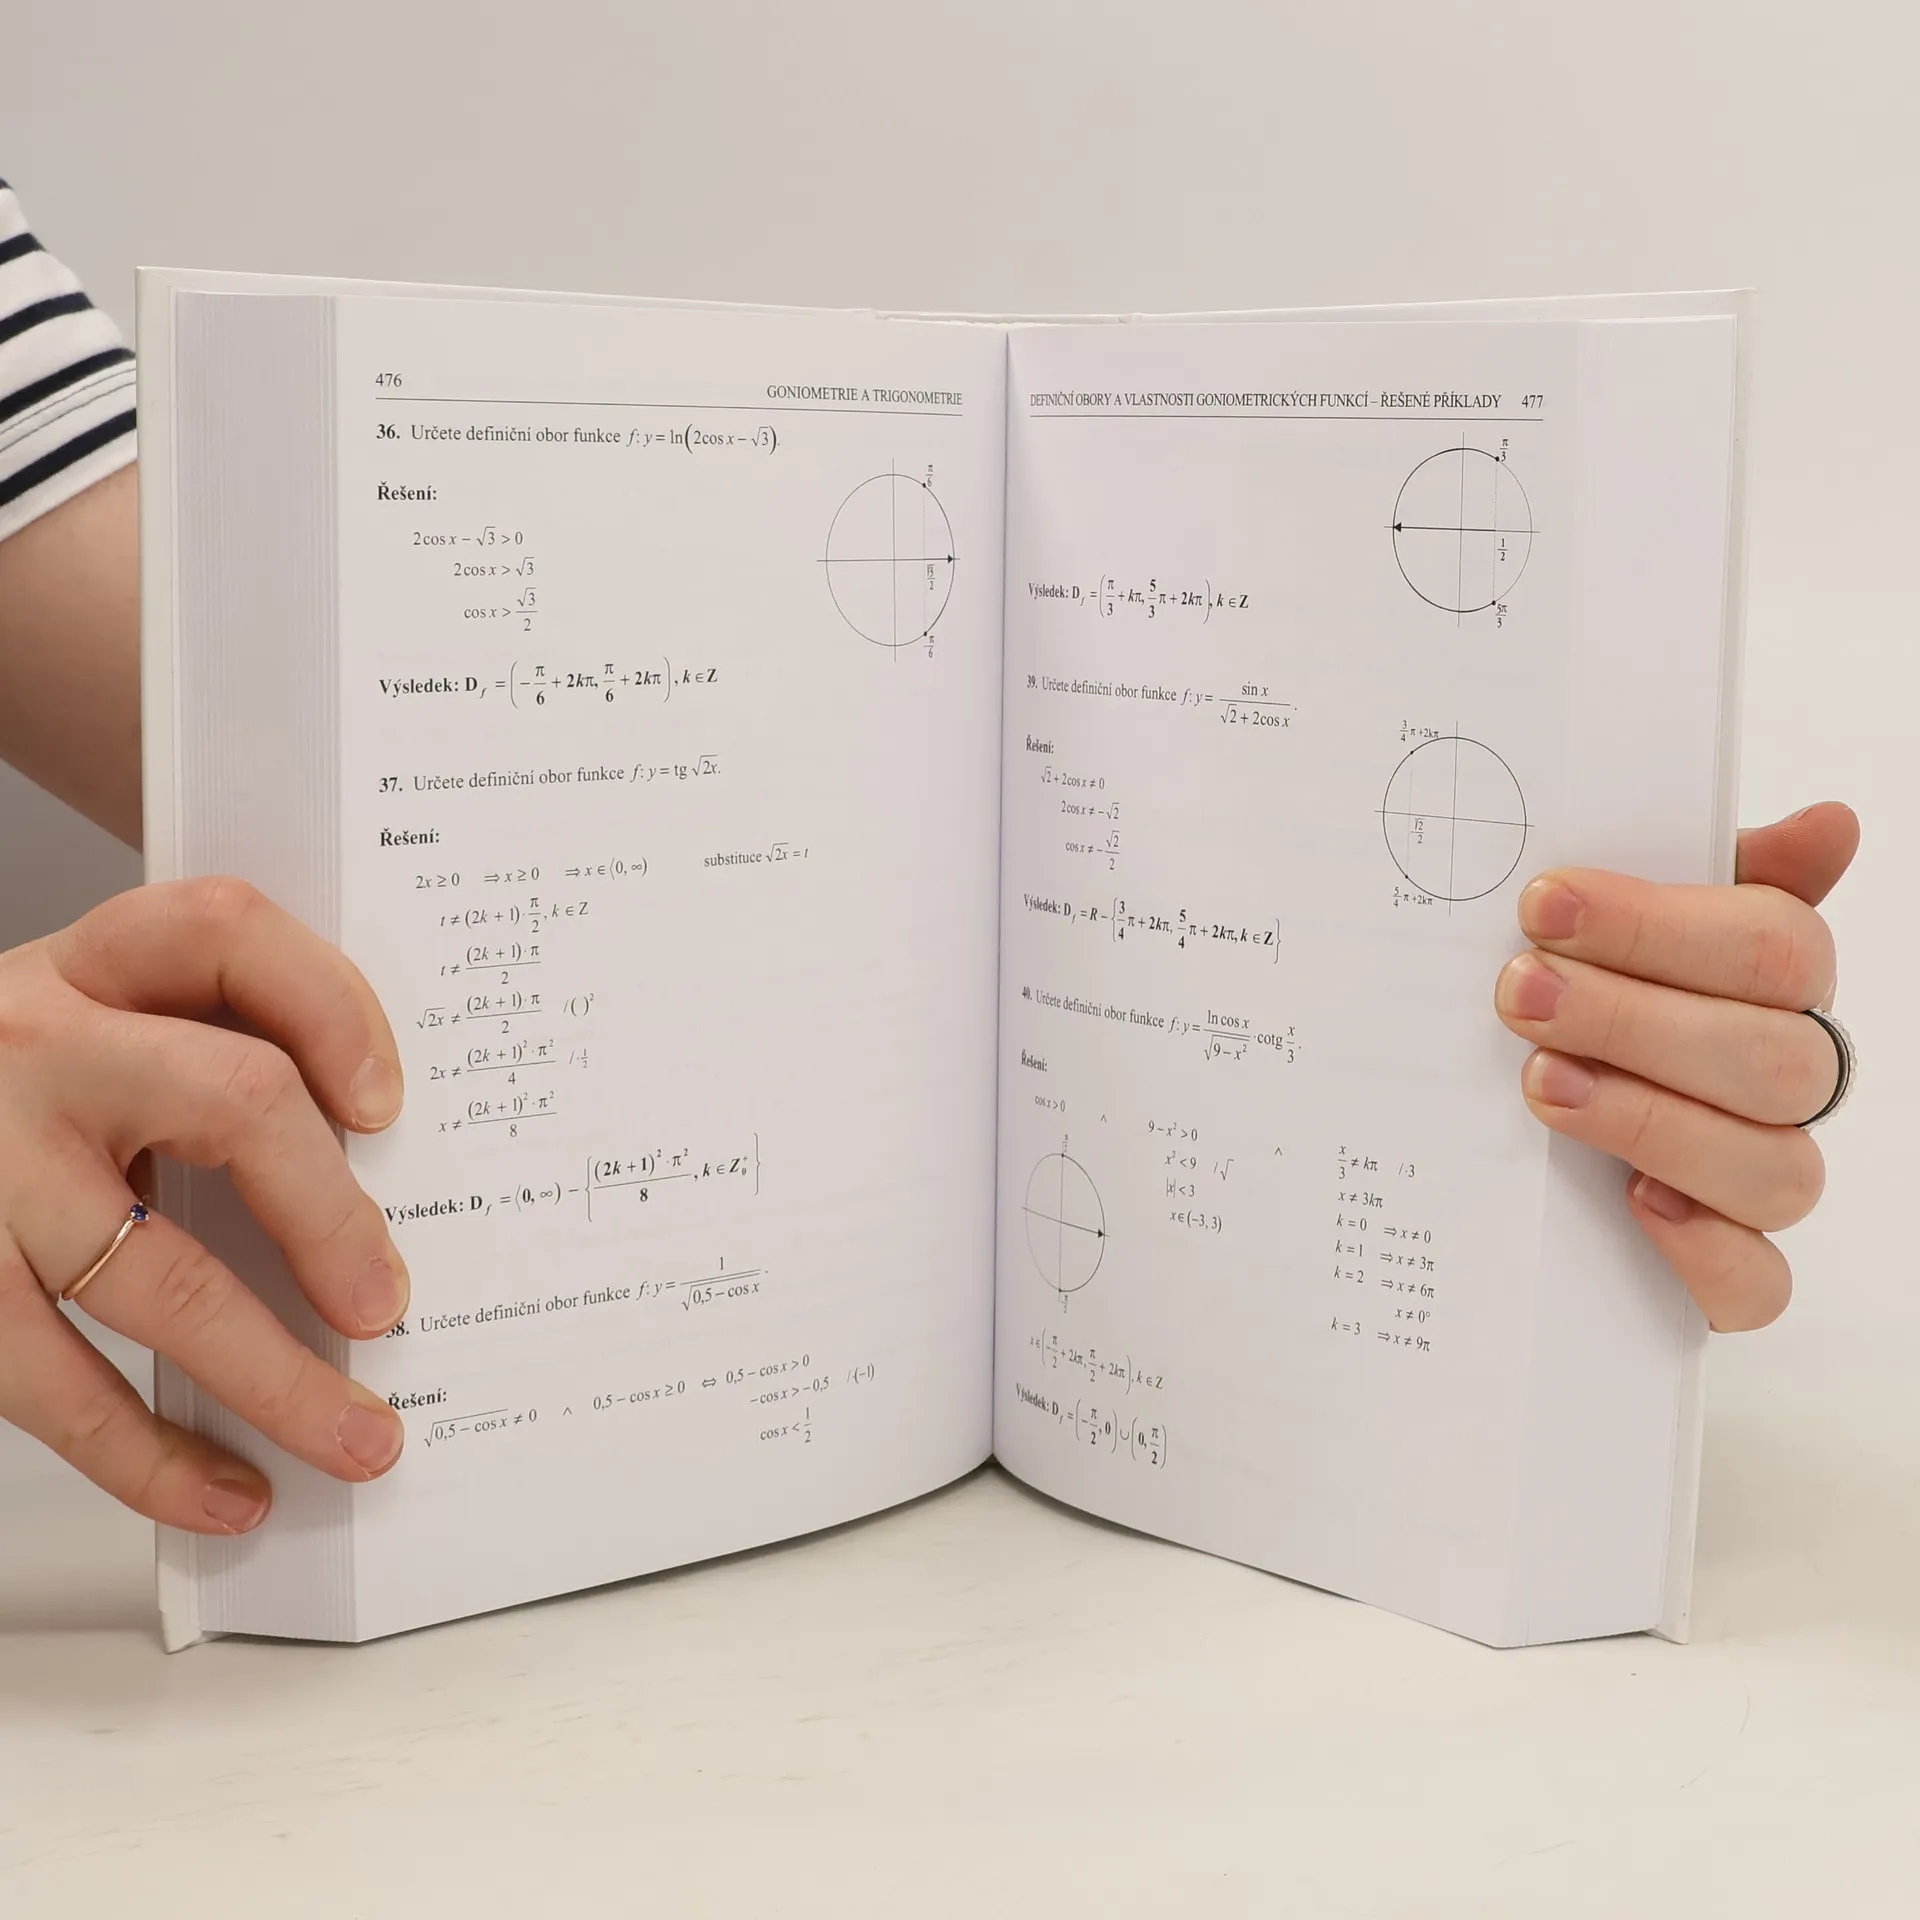 476
GONIOMETRIE A TRIGONOMETRIE
36. Určete definiční obor funkce f: y = ln(2cos x − √3).
π/6
Řešení:
2cos x − √3 > 0
2cos x > √3
cos x > √3/2
√3/2
π/6
Výsledek: D_f = (−π/6 + 2kπ, π/6 + 2kπ), k ∈ Z
37. Určete definiční obor funkce f: y = tg √2x.
Řešení:
2x ≥ 0 ⇒ x ≥ 0 ⇒ x ∈ ⟨0, ∞) substituce √2x = t
t ≠ (2k + 1)·π/2, k ∈ Z
t ≠ (2k + 1)·π/2
√2x ≠ (2k + 1)·π/2 /( )²
2x ≠ (2k + 1)²·π²/4 /·1/2
x ≠ (2k + 1)²·π²/8
Výsledek: D_f = ⟨0, ∞) − {(2k + 1)²·π²/8, k ∈ Z₀⁺}
38. Určete definiční obor funkce f: y = 1/√(0,5 − cos x).
Řešení:
√(0,5 − cos x) ≠ 0 ∧ 0,5 − cos x ≥ 0 ⇔ 0,5 − cos x > 0
−cos x > −0,5 /·(−1)
cos x < 1/2
DEFINIČNÍ OBORY A VLASTNOSTI GONIOMETRICKÝCH FUNKCÍ – ŘEŠENÉ PŘÍKLADY 477
π/3
1/2
5π/3
Výsledek: D_f = (π/3 + kπ, 5/3 π + 2kπ), k ∈ Z
39. Určete definiční obor funkce f: y = sin x/(√2 + 2cos x).
3/4 π +2kπ
Řešení:
√2 + 2cos x ≠ 0
2cos x ≠ −√2
cos x ≠ −√2/2
−√2/2
5/4 π +2kπ
Výsledek: D_f = R − {3/4 π + 2kπ, 5/4 π + 2kπ, k ∈ Z}
40. Určete definiční obor funkce f: y = ln cos x/√(9 − x²) · cotg x/3.
Řešení:
cos x > 0 ∧ 9 − x² > 0 ∧ x/3 ≠ kπ /·3
x² < 9 /√
|x| < 3
x ∈ (−3, 3)
x ≠ 3kπ
k = 0 ⇒ x ≠ 0
k = 1 ⇒ x ≠ 3π
k = 2 ⇒ x ≠ 6π
x ≠ 0°
k = 3 ⇒ x ≠ 9π
π/2
x ∈ (−π/2 + 2kπ, π/2 + 2kπ), k ∈ Z
Výsledek: D_f = (−π/2, 0) ∪ (0, π/2)